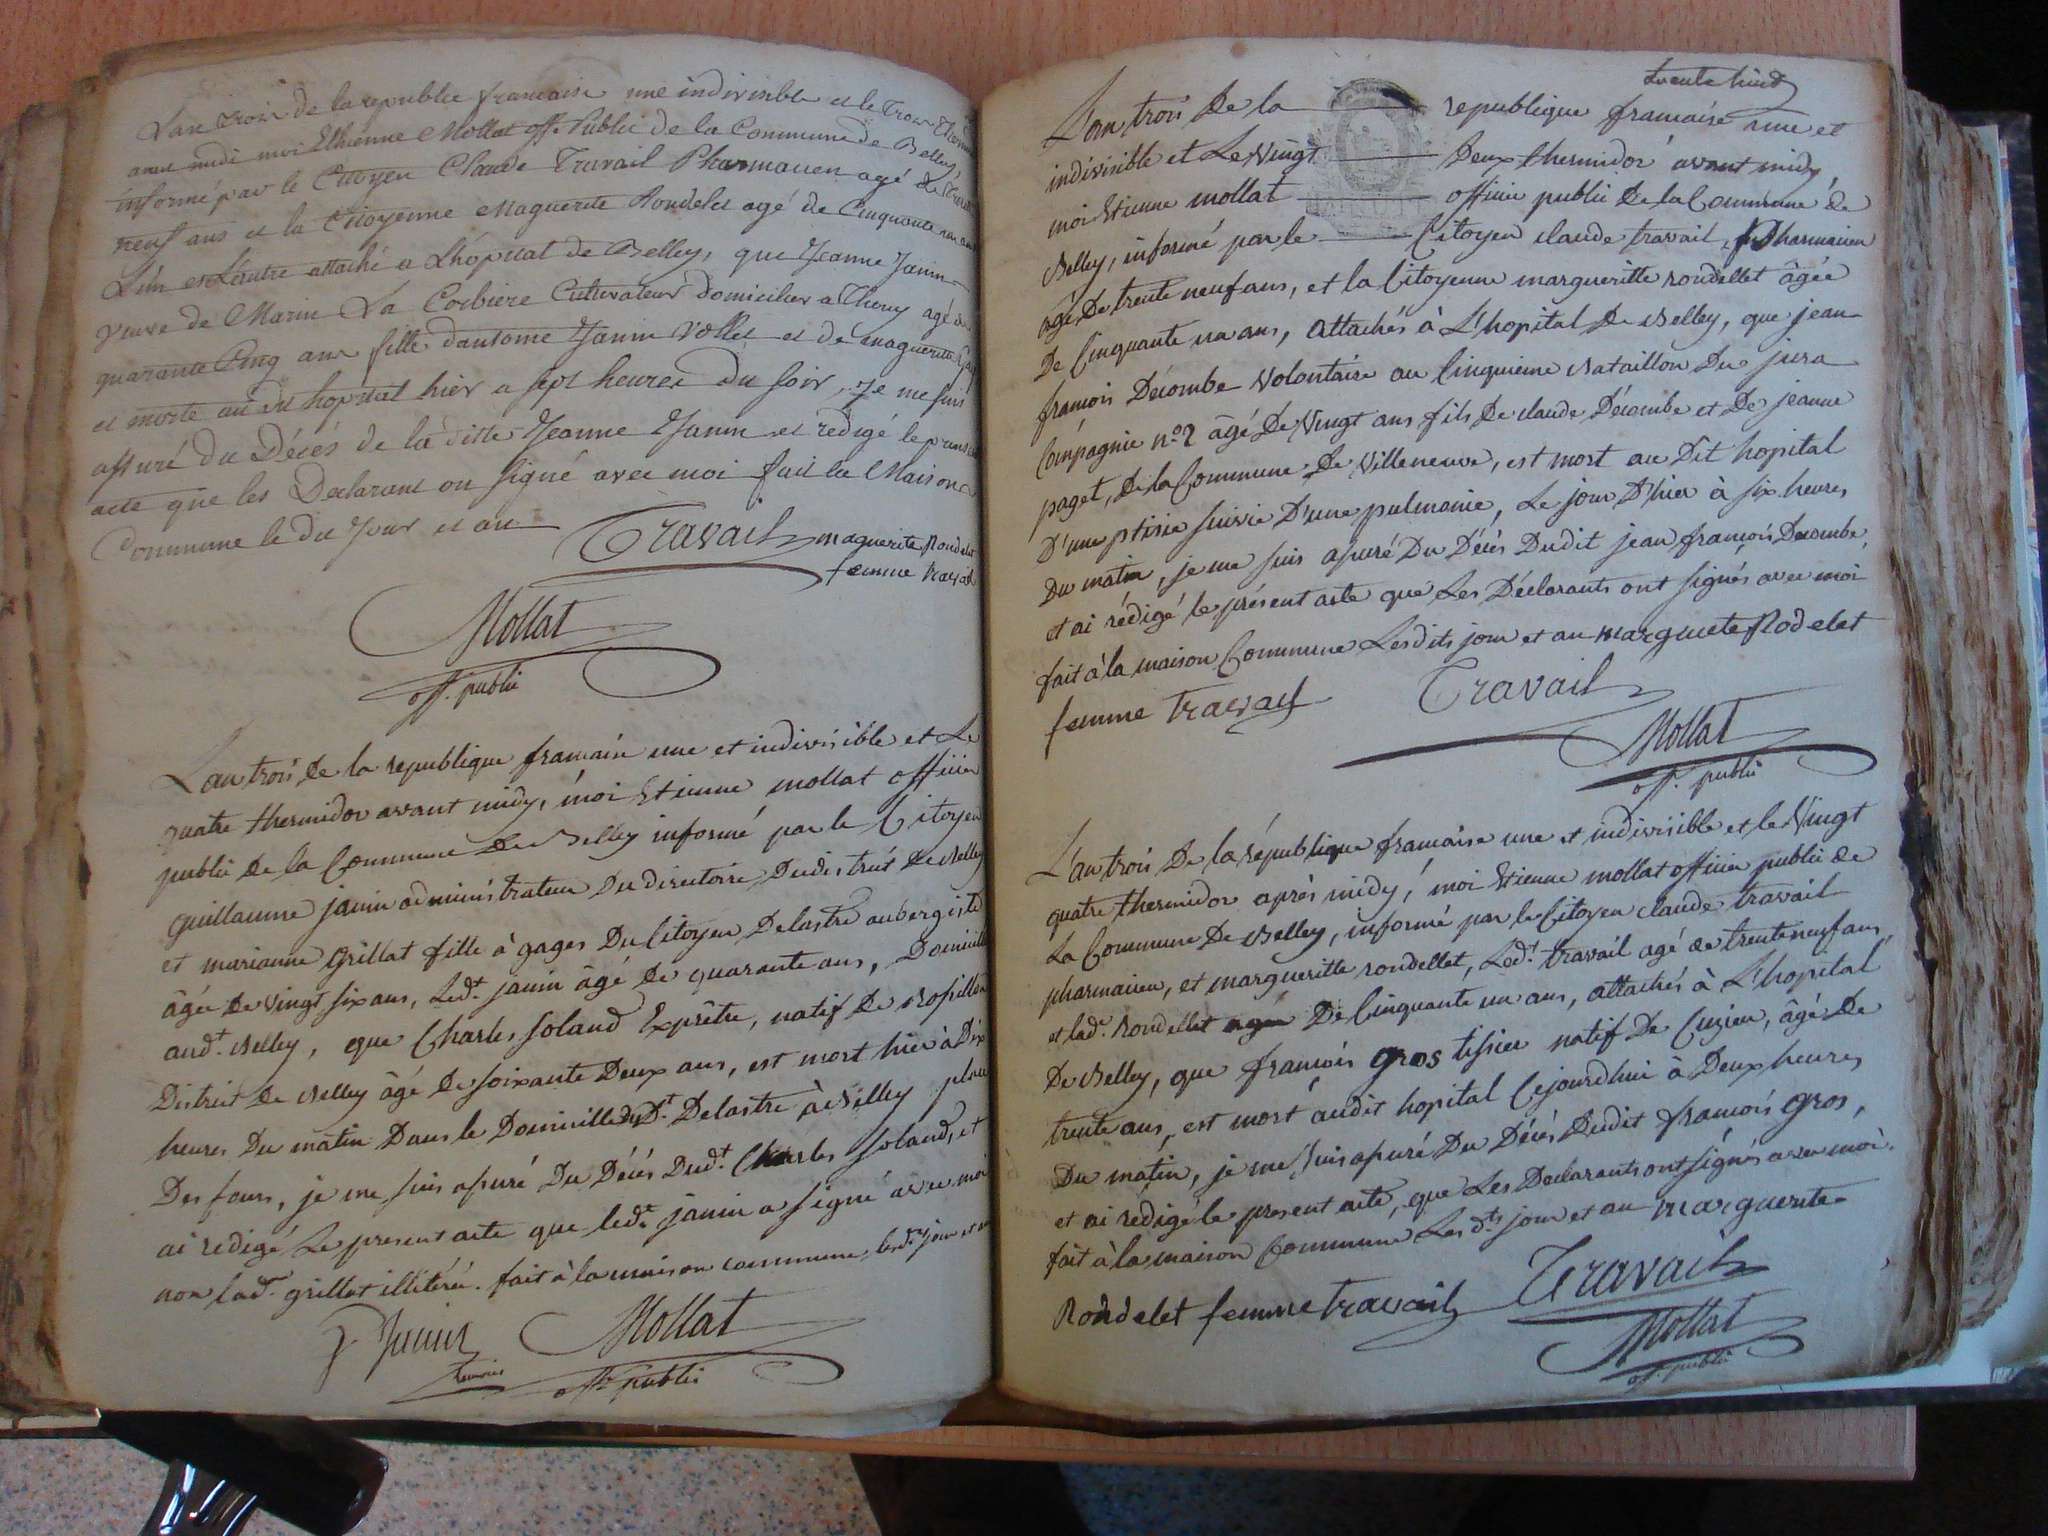 L'an trois de la republic francaise une indivisible et le Trois
avant midi moi Ethienne Mollat off. Public de la Commune de Belley
informé par le Citoyen Claude Travail Pharmacien agé de
neuf ans et la Citoyenne Maguerite Rondelet agé de Cinquante
L'un et L'autre attaché a L'hôpital de Belley, que Jeanne Janin
veuve de Marin La Corbiere Cultivateur domicilier a agé de
quarante Cinq ans fille dantoine Janin et de maguerite
et morte au du hopital hier a sept heures du soir, Je me suis
assuré du Décés de la ditte Jeanne Janin et redigé le present
acte que les Declarant on signé avec moi fait la Maison
Commune le du Jour et an
Travail maguerite Rondelet
femme travail
Mollat
off. public
L'an trois de la republique francaise une et indivisible et Le
quatre thermidor avant midy, moi Etienne mollat officier
public de la Commune de Belley informé par le Citoyen
guillaume janin administrateur du directoire du district de Belley
et marianne grillat fille à gages du Citoyen Delastre aubergiste
âgée de vingt six ans, Ledt. janin âgé de quarante ans, Domicilié
audt. Belley, que Charles Soland Exprêtre, natif de Rossillon
District de Belley âgé de soixante Deux ans, est mort hier à Dix
heures Du matin Dans le Domicille du Dt. Delastre à Belley place
Des fours, je me suis assuré Du Décés Dudt. Charles Soland, et
ai redigé Le present acte que ledt. janin a signé avec moi
non ladt. grillat illitéré. fait à la maison commune, lesdts jour et an
Janin
Mollat
offr. public
trente huit
L'an trois De la republique francaise une et
indivisible et Le vingt Deux thermidor avant midy,
moi Etienne mollat officier public de la Commune de
Belley, informé par le Citoyen claude travail, Pharmacien
agé De trente neuf ans, et la Citoyenne margueritte rondellet âgée
De Cinquante un ans, attachés à L'hopital De Belley, que jean
francois Décombe Volontaire au Cinquieme Bataillon Du jura
Compagnie n.o 2 âgé De Vingt ans fils De claude Décombe et De jeanne
paget, De la Commune De Villeneuve, est mort au Dit hopital
D'une ptisie suivie D'une pulmonie, Le jour D'hier à six heures
Du matin, je me suis assuré Du Décés Dudit jean francois Decombe,
et ai rédigé le présent acte que Les Déclarants ont signés avec moi
fait à la maison Commune Lesdits jour et an marguete Rodelet
femme Travail Travail
Mollat
off. public
L'an trois De la république francaise une et indivisible et le Vingt
quatre thermidor après midy, moi Etienne mollat officier public de
La Commune De Belley, informé par le Citoyen claude travail
pharmacien, et margueritte rondellet, Ledt. travail agé de trente neuf ans,
et ladt. Rondellet De Cinquante un ans, attachés à L'hopital
De Belley, que francois gros tissier natif De Cuzieu, âgé De
trente ans, est mort audit hopital Cejourdhui à Deux heures
Du matin, je me suis assuré Du Décés Dudit francois gros,
et ai redigé le present acte, que Les Declarants ont signés avec moi.
fait à la maison Commune Lesdts. jour et an marguerite
Rondelet femme travail Travail
Mollat
off. public